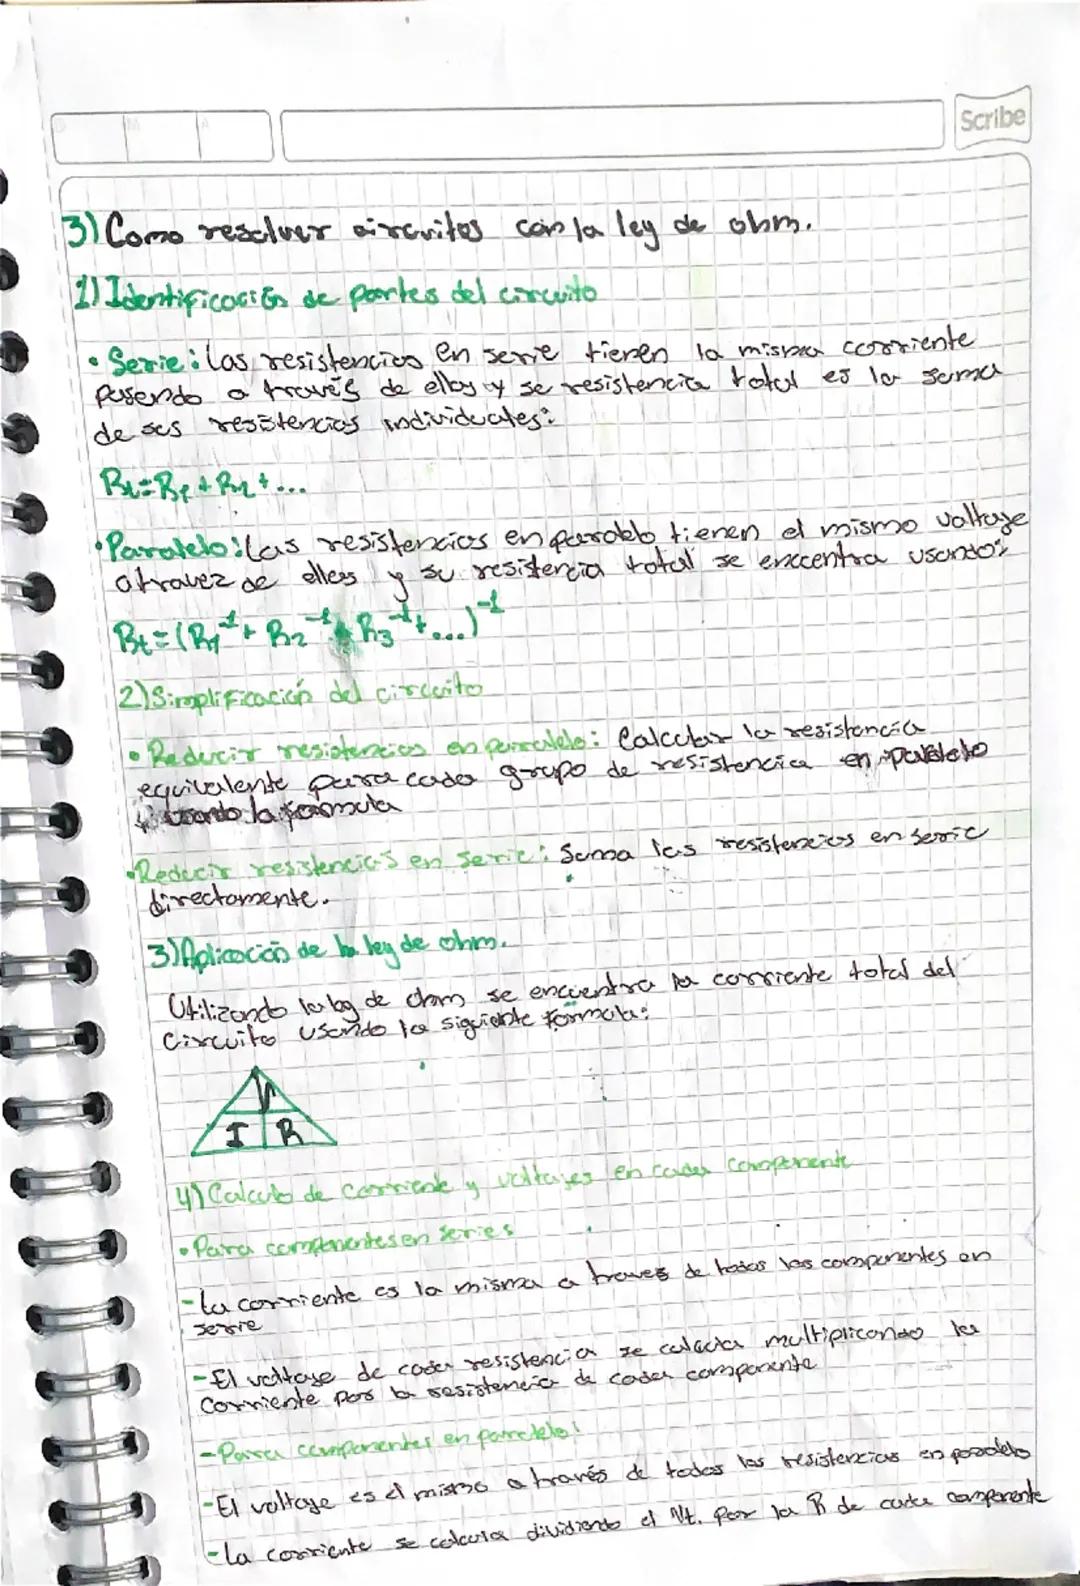 Scribe
3) Como resolver circuitos con la ley de ohm.
1) Identificación de partes del circuito
• Serie: Las resistencias en serie tienen la misma corriente
pasando a través de ellas y se resistencia total es la suma
de ses resistencias individuales:
Rt=R1+R2+...
• Paralelo: Las resistencias en paralelo tienen el mismo voltaje
atravez de ellas y su resistencia total se enccentra usando:
Rt=(R1⁻¹+R2⁻¹+R3⁻¹+...)⁻¹
2) Simplificación del circuito
• Reducir resistencias en paralelo: Calcular la resistencia
equivalente para cada grupo de resistencia en paralelo
usando la formula
• Reducir resistencias en serie: Suma las resistencias en serie
directamente.
3) Aplicación de la ley de ohm.
Utilizando la ley de ohm se encuentra la corriente total del
circuito usando la siguiente formula:
V
I R
4) Calculo de corriente y voltajes en cada componente
• Para componentes en series
- La corriente es la misma a traves de todos los componentes en
serie
- El voltaje de cada resistencia se calcula multiplicando la
corriente por la resistencia de cada componente
- Para componentes en paralelo:
- El voltaje es el mismo a través de todas las resistencias en paralelo
- La corriente se calcula dividiendo el Vt. por la R de cada componente